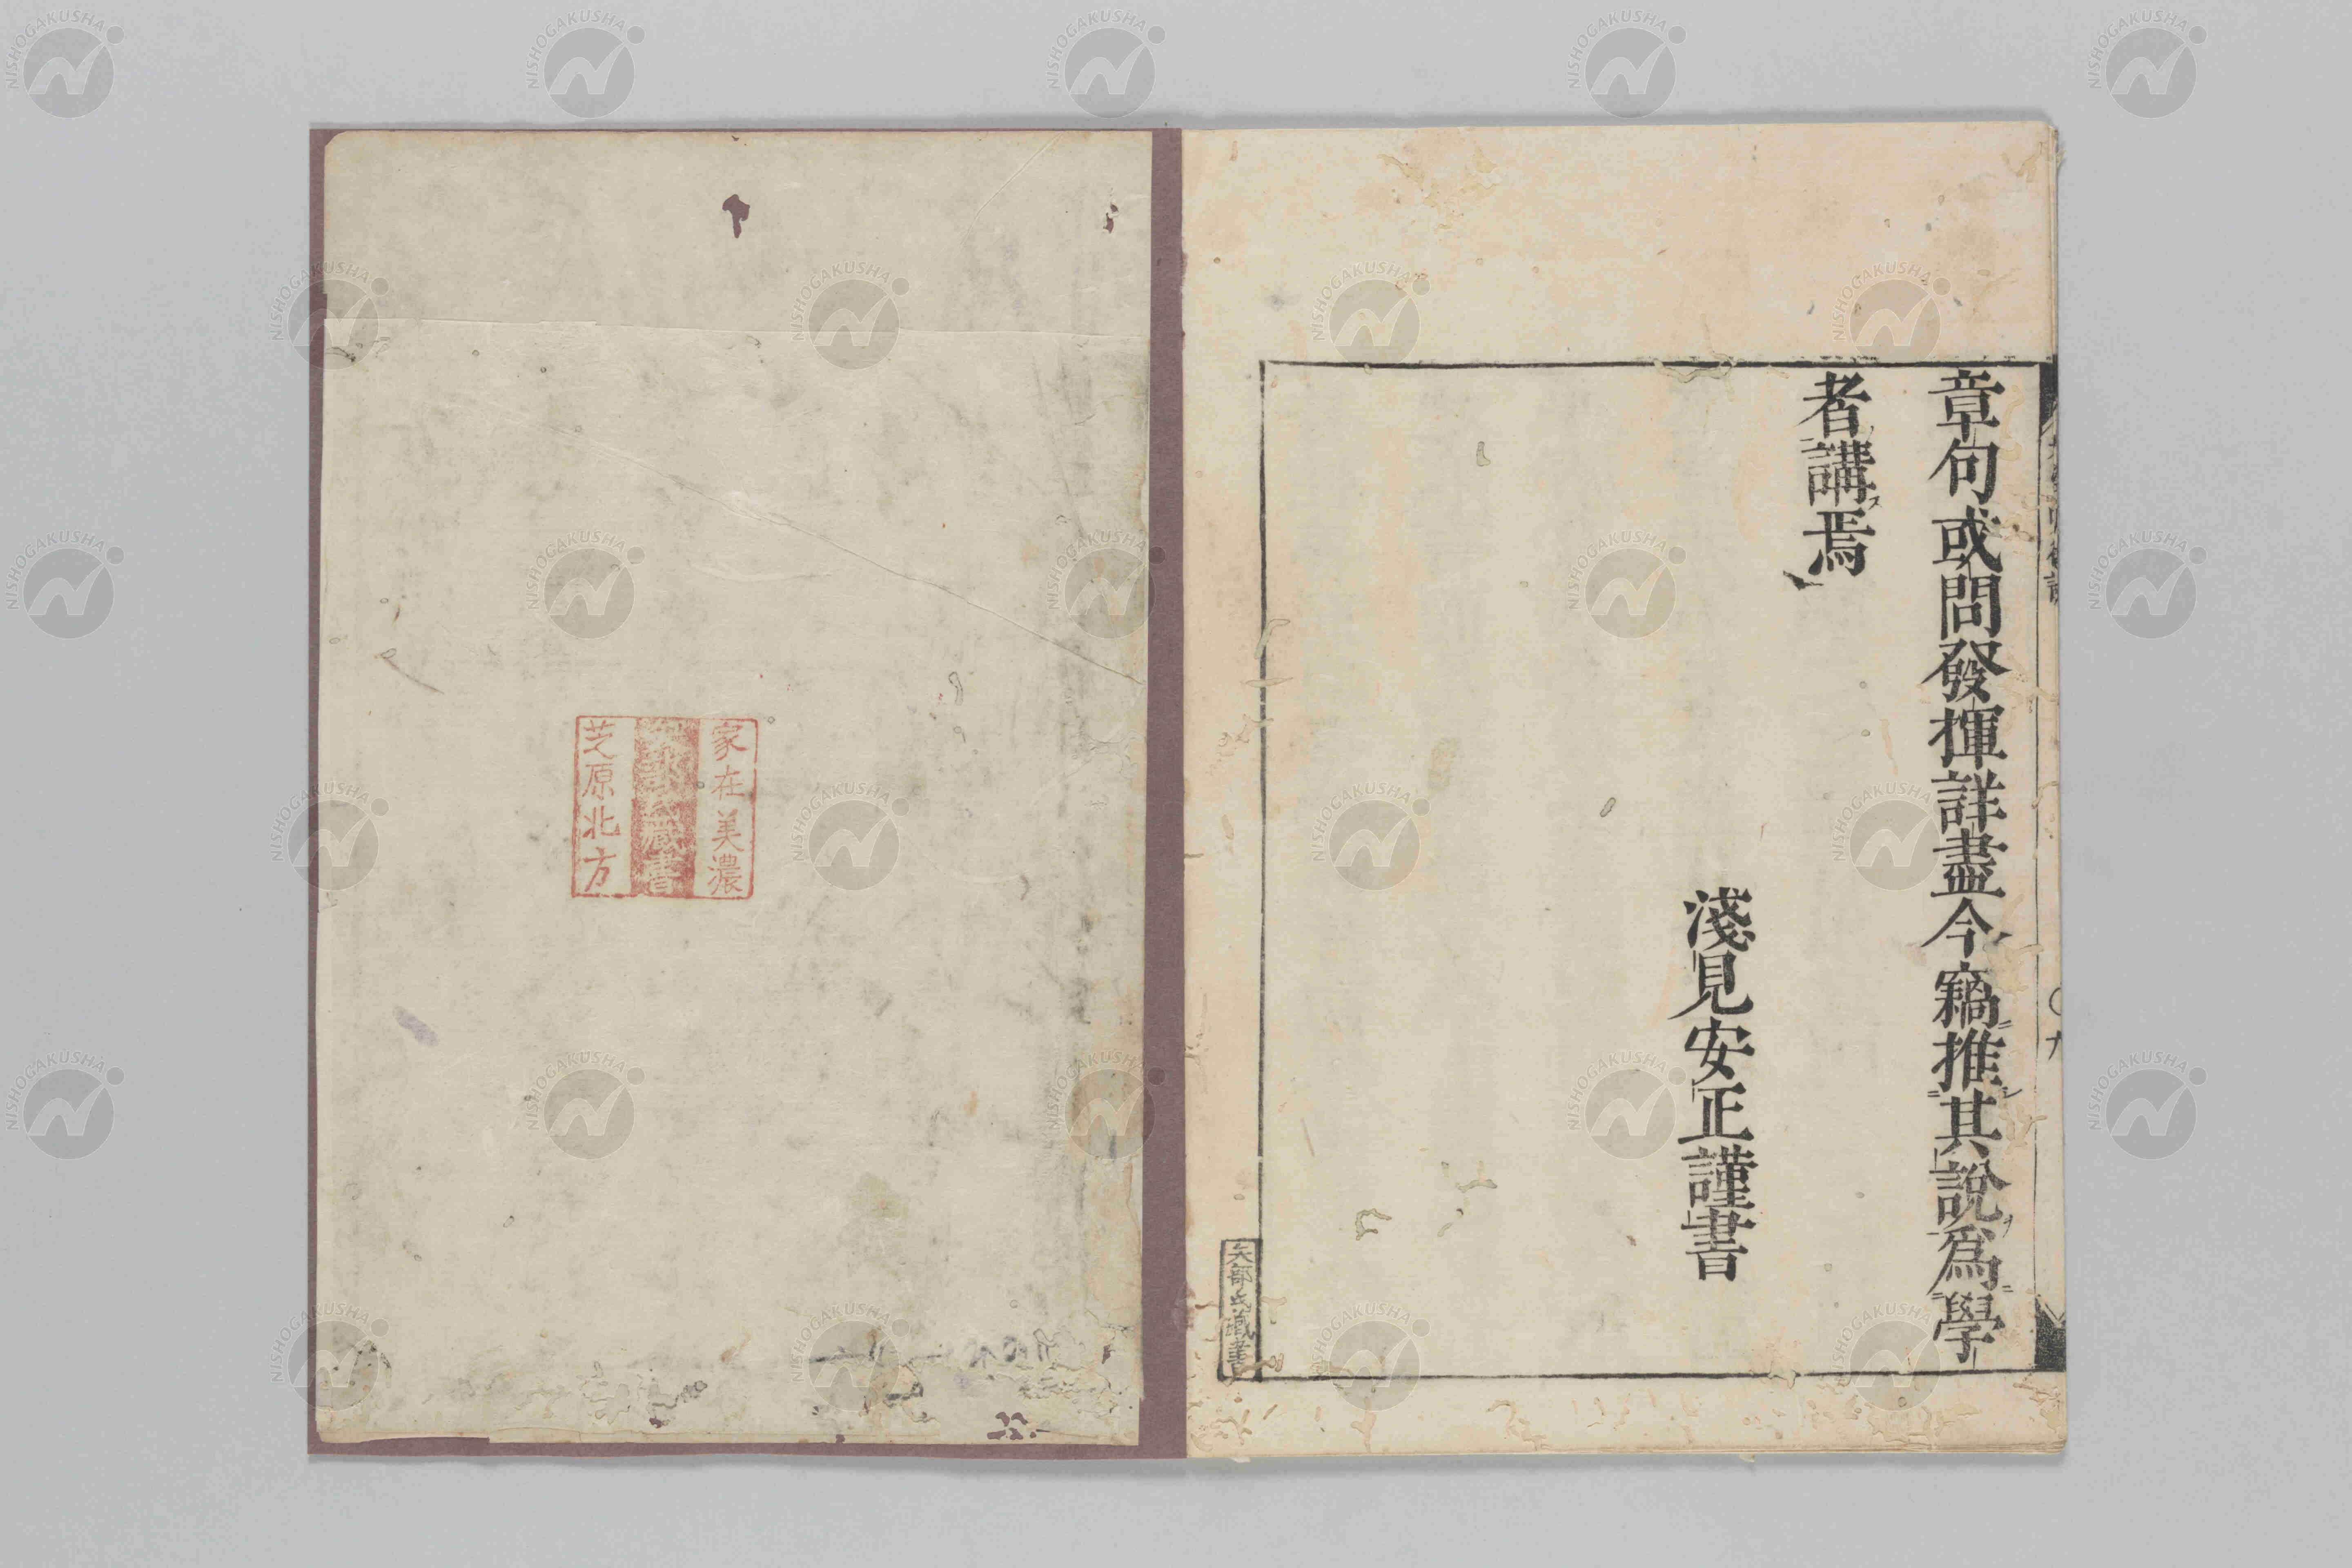 章句或問發揮詳盡今竊推其說爲學
者講焉
淺見安正謹書
矢部氏藏書
家在美濃
藏書
芝原北方
NISHOGAKUSHA